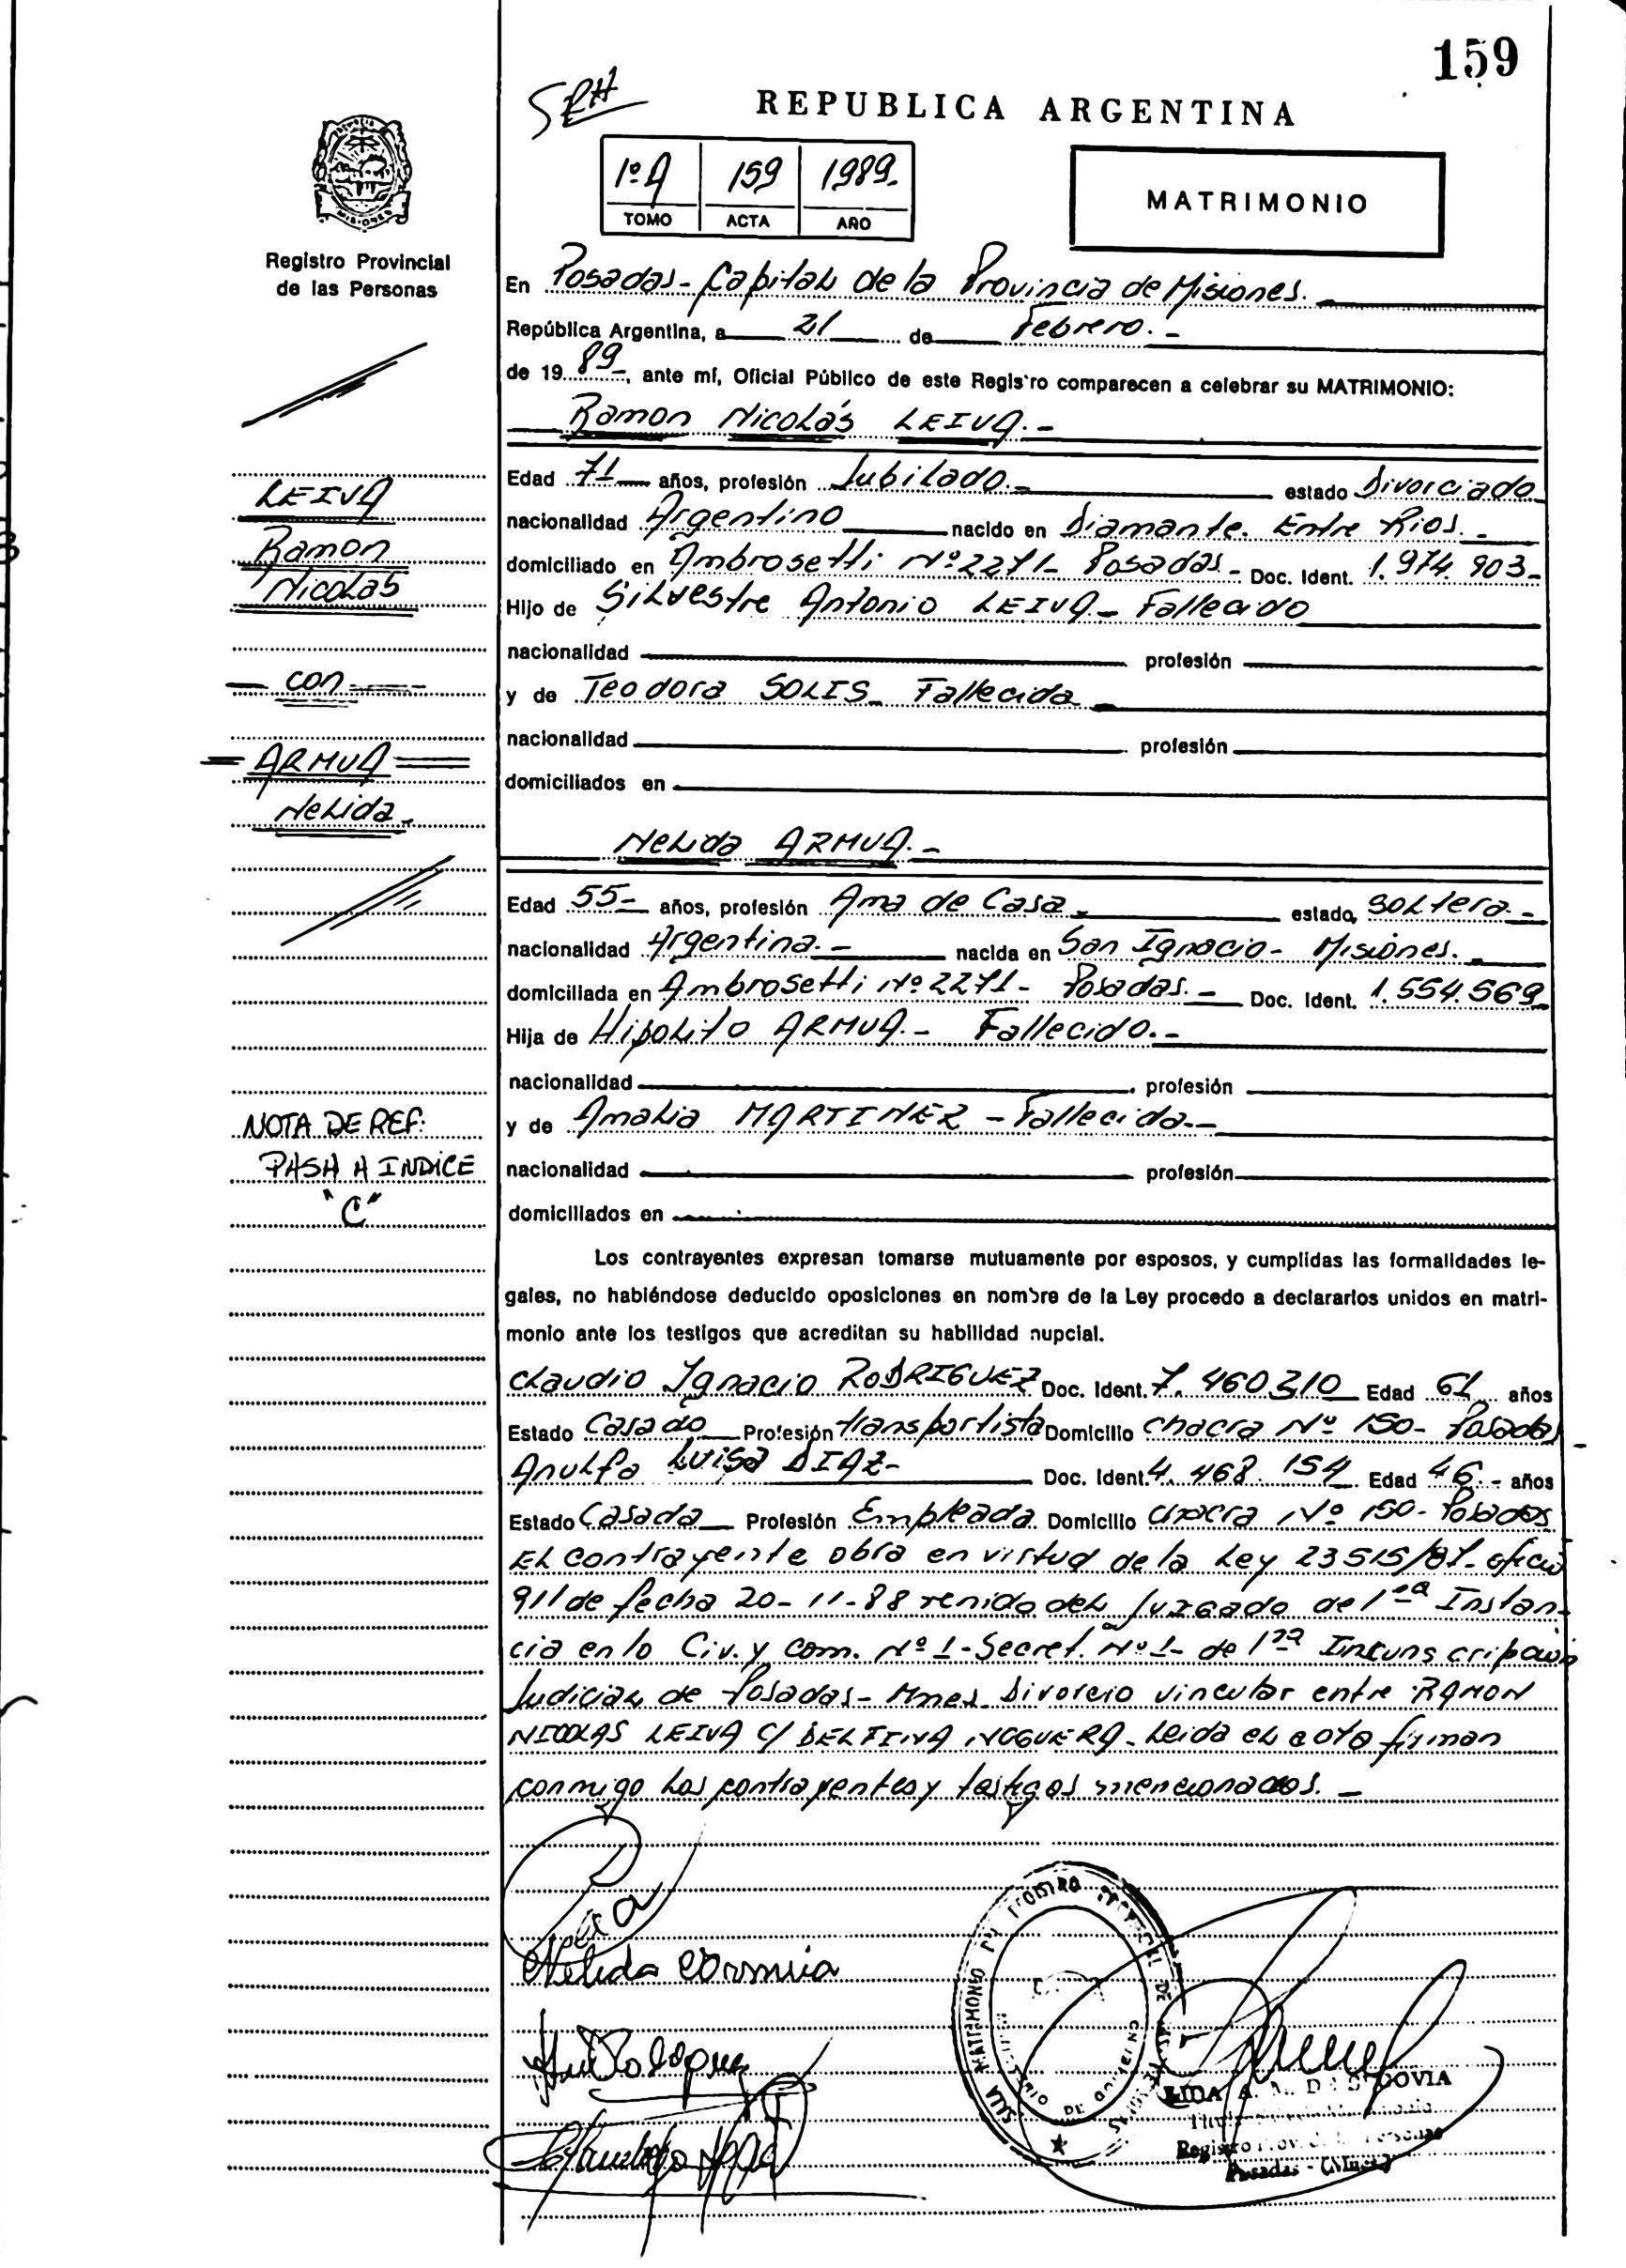 159
SRH
REPUBLICA ARGENTINA
1º A 159 1989.
TOMO ACTA AÑO
MATRIMONIO
MISIONES
Registro Provincial
de las Personas
En Posadas - Capital de la Provincia de Misiones.
República Argentina, a 21 de Febrero. -
de 19 89-, ante mí, Oficial Público de este Registro comparecen a celebrar su MATRIMONIO:
Ramon Nicolás LEIVA. -
Edad 71 años, profesión Jubilado. - estado Divorciado
nacionalidad Argentino nacido en Diamante. Entre Rios. -
domiciliado en Ambrosetti Nº 2271- Posadas - Doc. Ident. 1.974.903-
Hijo de Silvestre Antonio LEIVA - Fallecido
nacionalidad profesión
y de Teodora SOLIS - Fallecida
nacionalidad profesión
domiciliados en
Nelida ARMUA. -
Edad 55- años, profesión Ama de Casa - estado, Soltera. -
nacionalidad Argentina. - nacida en San Ignacio - Misiones. -
domiciliada en Ambrosetti Nº 2271 - Posadas. - Doc. Ident. 1.554.569
Hija de Hipolito ARMUA. - Fallecido. -
nacionalidad profesión
y de Amalia MARTINEZ - Fallecida. -
nacionalidad profesión
domiciliados en
LEIVA
Ramon
Nicolas
- con
= ARMUA =
Nelida -
NOTA DE REF:
PASA A INDICE
"C"
Los contrayentes expresan tomarse mutuamente por esposos, y cumplidas las formalidades le-
gales, no habiéndose deducido oposiciones en nombre de la Ley procedo a declararlos unidos en matri-
monio ante los testigos que acreditan su habilidad nupcial.
Claudio Ignacio RODRIGUEZ Doc. Ident. 7.460310 Edad 61 años
Estado Casado Profesión transportista Domicilio Chacra Nº 150- Posadas -
Anulfa Luisa DIAZ - Doc. Ident. 4.468.154 Edad 46.- años
Estado Casada Profesión Empleada Domicilio Chacra Nº 150 - Posadas
El contrayente obra en virtud de la Ley 23515/87- oficio
911 de fecha 20-11-88 venido del Juzgado de 1ra Instan-
cia en lo Civ. y Com. Nº 1 - Secret. Nº 1- de 1ra
Judicial de Posadas - Mnes Divorcio vincular entre RAMON
NICOLAS LEIVA C/ DELFINA NOGUERA - Leida el acta firman
conmigo los contrayentes y testigos mencionados. -
Nelida Armua
DE SEGOVIA
Posadas -